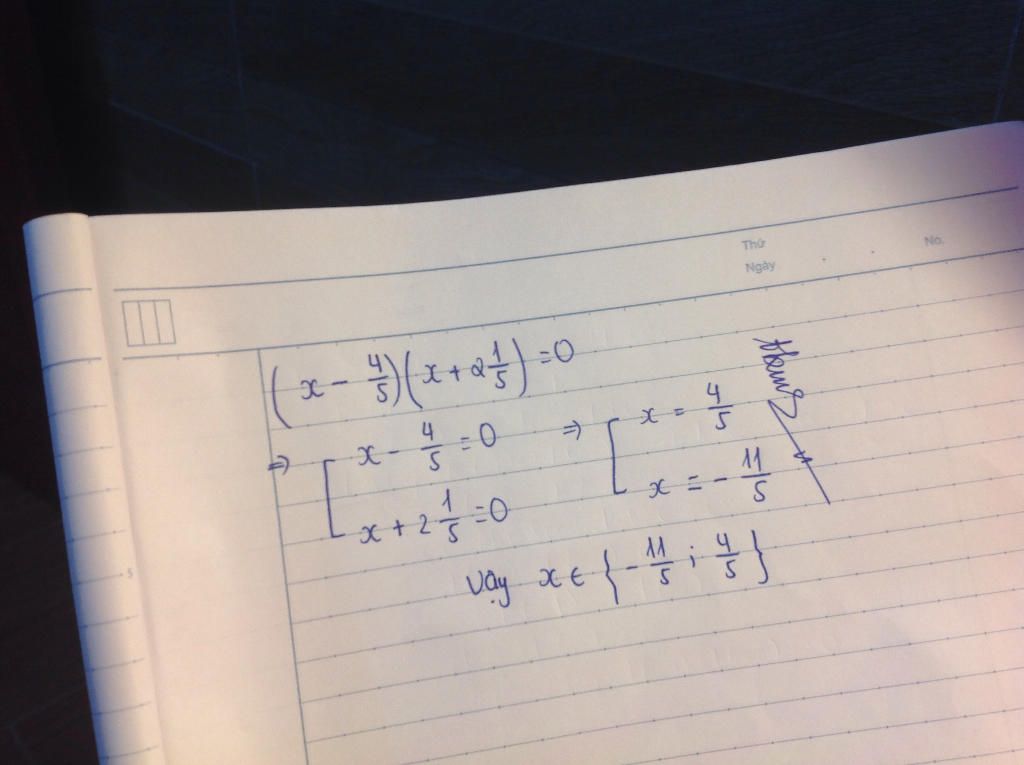 Thứ
Ngày
No.
(x - 4/5)(x + 2 1/5) = 0
⇒ [ x - 4/5 = 0 ⇒ [ x = 4/5
x + 2 1/5 = 0 x = - 11/5
Vậy x ∈ {- 11/5 ; 4/5}
5